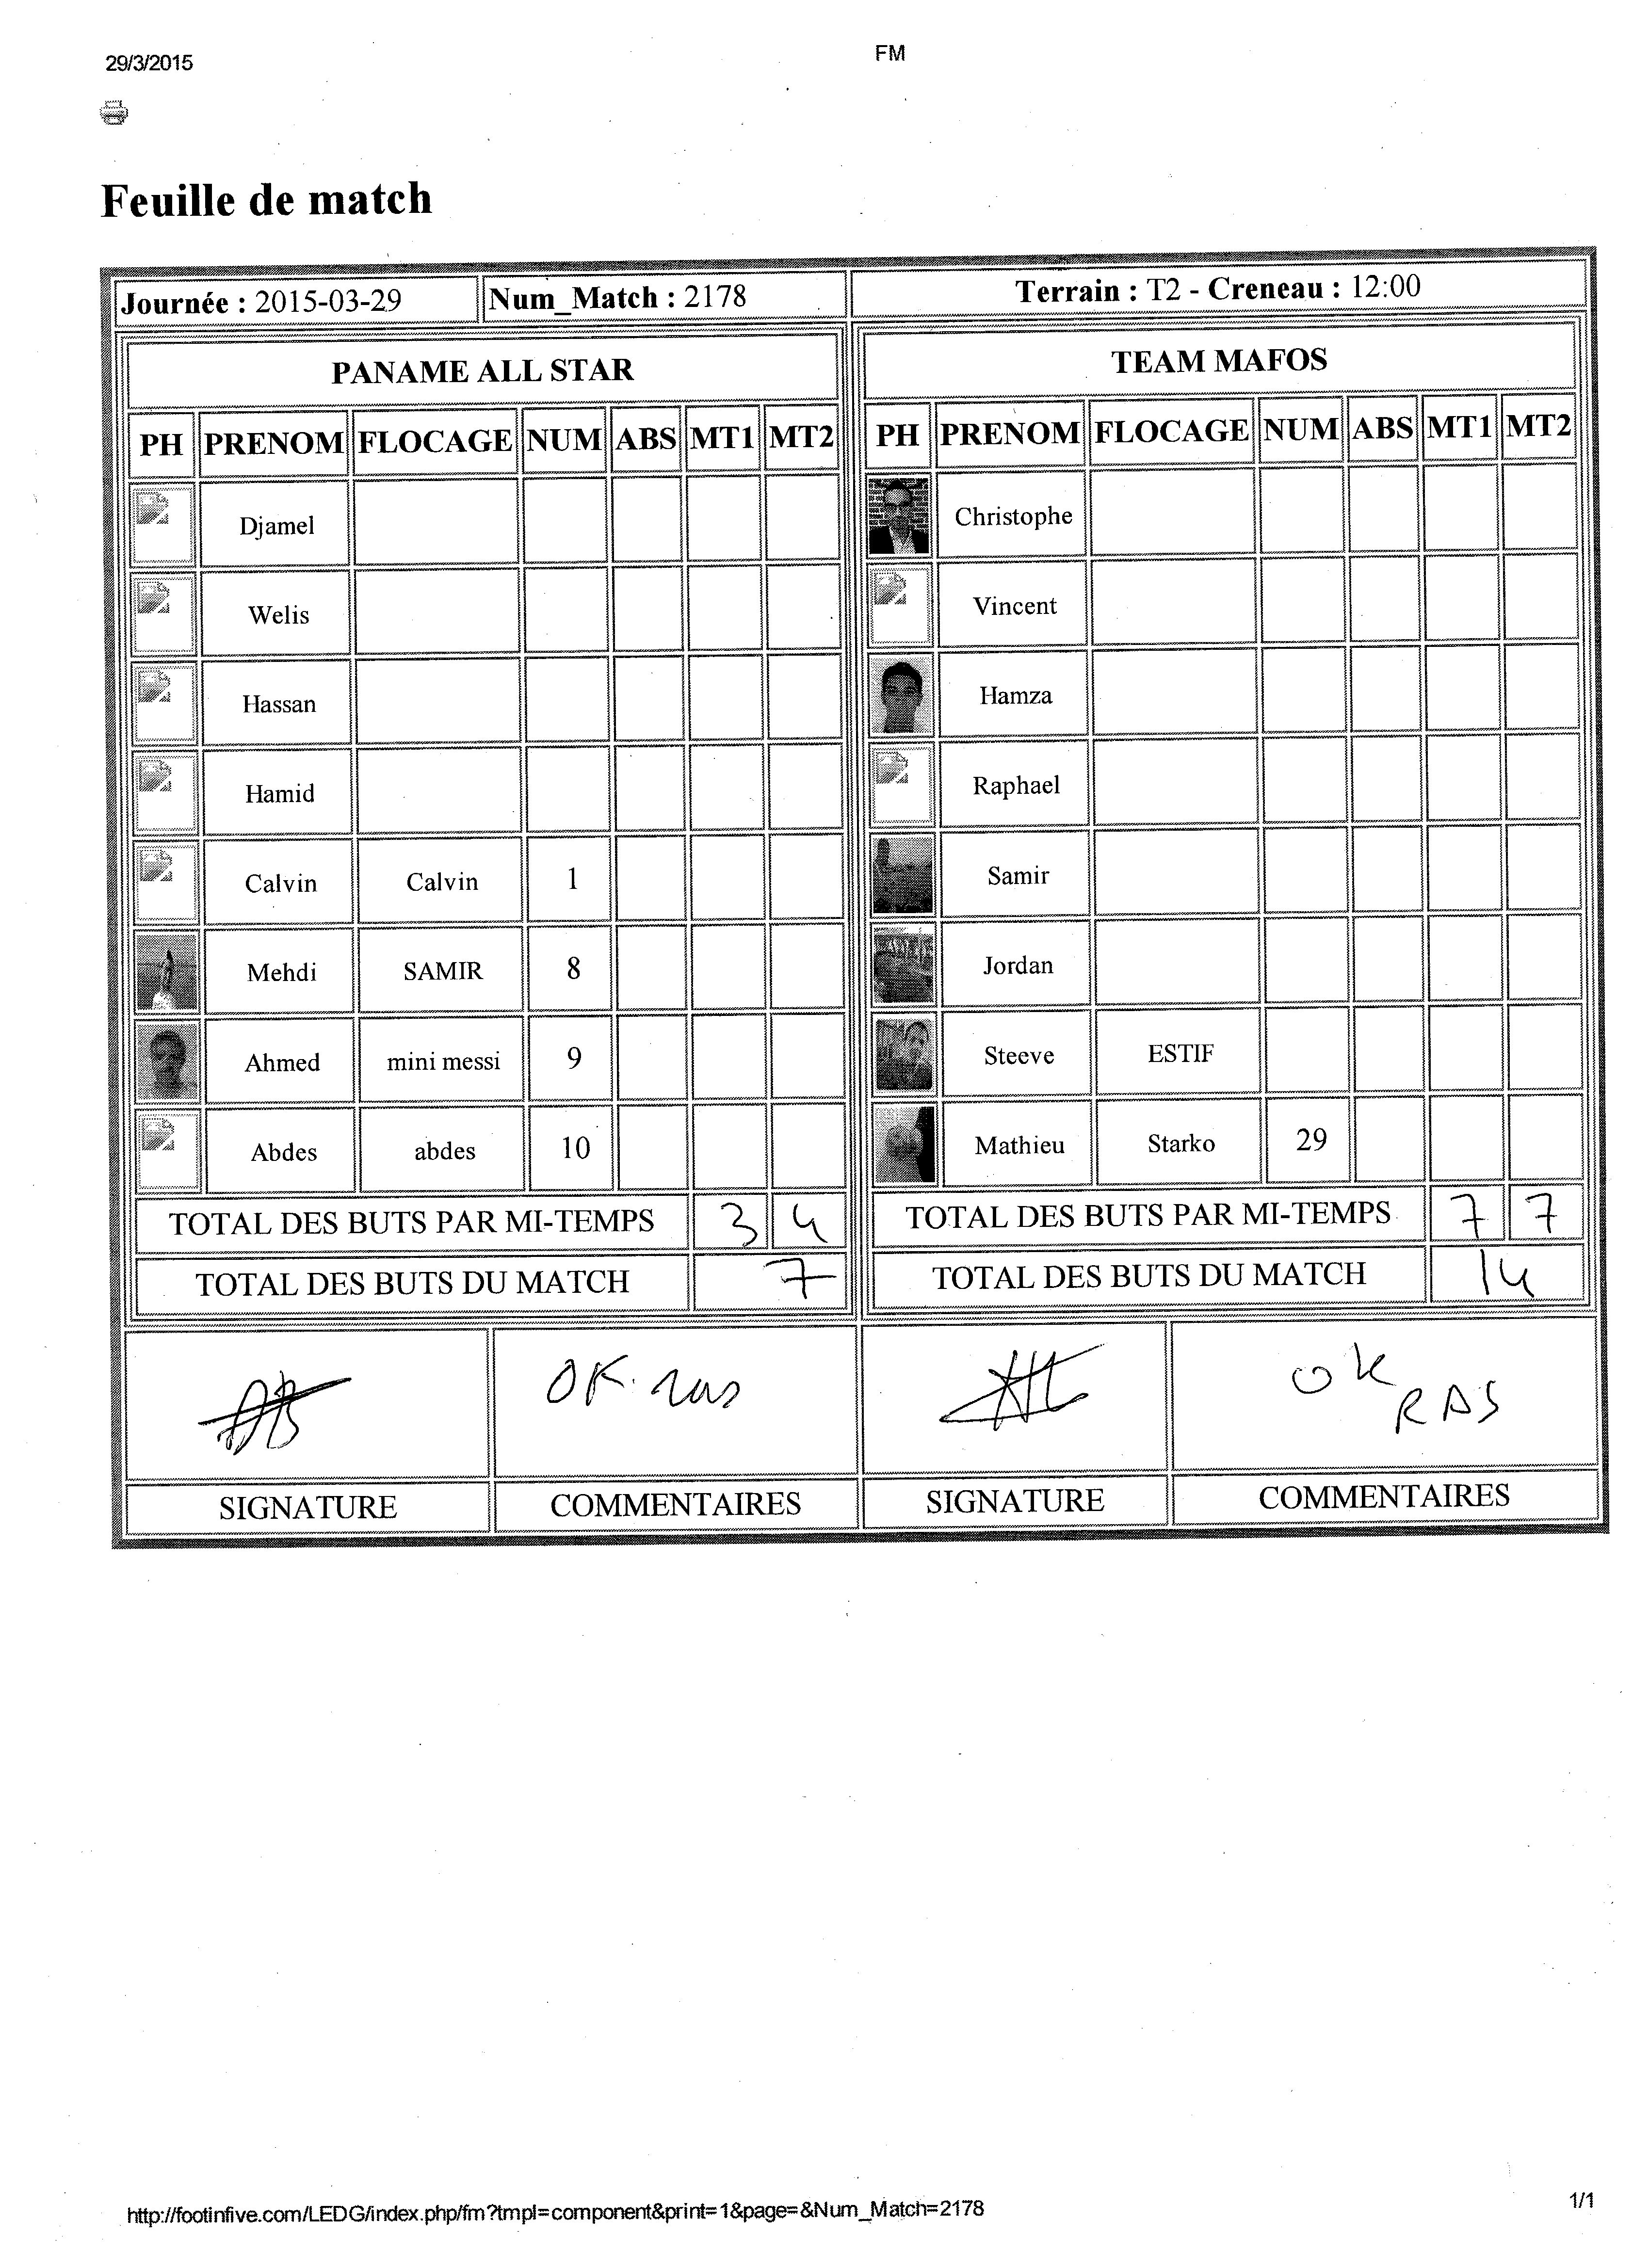 29/3/2015
FM
Feuille de match
Journée : 2015-03-29 Num_Match : 2178 Terrain : T2 - Creneau : 12:00
PANAME ALL STAR
PH PRENOM FLOCAGE NUM ABS MT1 MT2
Djamel
Welis
Hassan
Hamid
Calvin Calvin 1
Mehdi SAMIR 8
Ahmed mini messi 9
Abdes abdes 10
TOTAL DES BUTS PAR MI-TEMPS 3 4
TOTAL DES BUTS DU MATCH 7
OK. ras
SIGNATURE COMMENTAIRES
TEAM MAFOS
PH PRENOM FLOCAGE NUM ABS MT1 MT2
Christophe
Vincent
Hamza
Raphael
Samir
Jordan
Steeve ESTIF
Mathieu Starko 29
TOTAL DES BUTS PAR MI-TEMPS 7 7
TOTAL DES BUTS DU MATCH 14
ok
RAS
SIGNATURE COMMENTAIRES
http://footinfive.com/LEDG/index.php/fm?tmpl=component&print=1&page=&Num_Match=2178
1/1